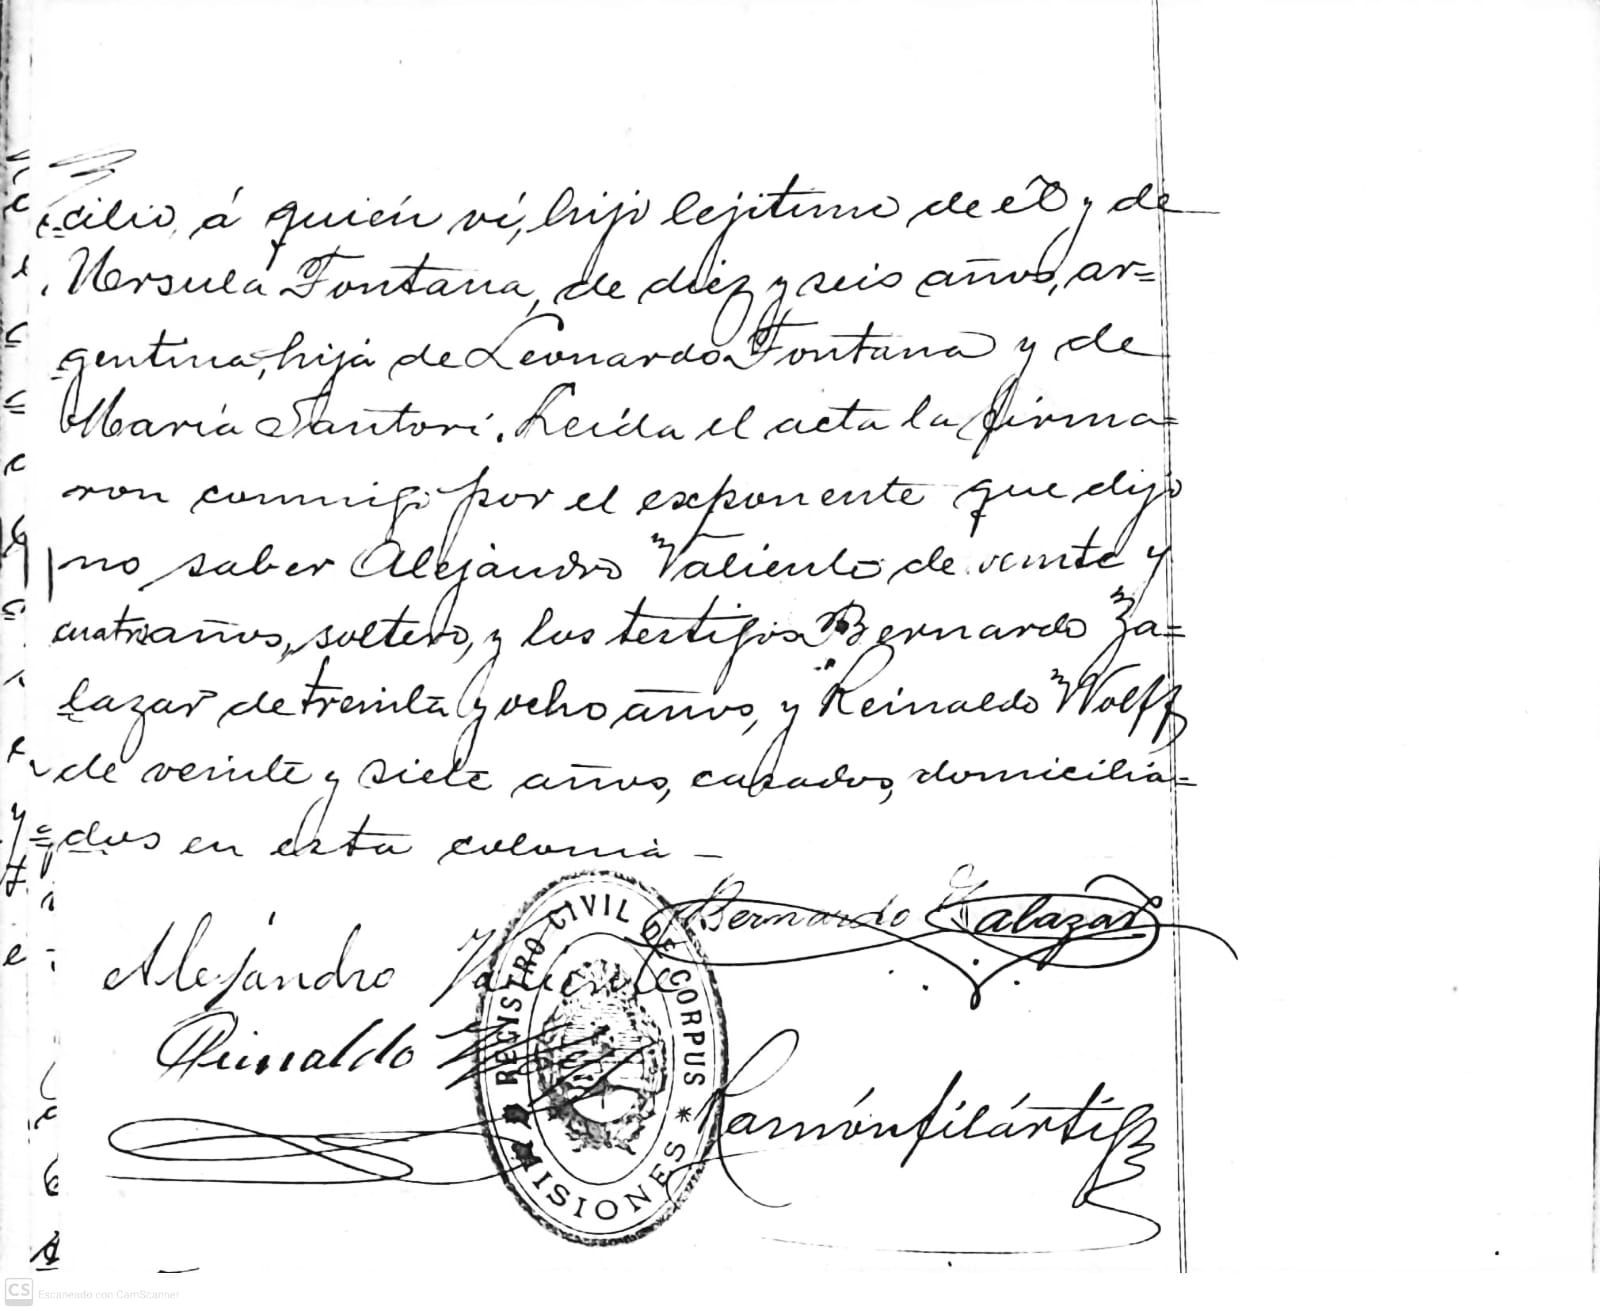 cilio, á quién ví, hijo lejitimo de él y de
Ursula Fontana, de diez y seis años, ar=
gentina, hija de Leonardo Fontana y de
María Santori. Leída el acta la firma=
ron conmigo por el exponente que dijo
no saber Alejándro Valiente de veinte y
cuatro años, soltero, y los testigos Bernardo Za=
lazar de treinta y ocho años, y Reinaldo Wolff
de veinte y siete años, casados, domicilia=
dos en esta colonia —
Bernardo Zalazar
Alejándro Valiente
Reinaldo Wolff
Ramón filártiga
REGISTRO CIVIL DE CORPUS * MISIONES *
CS Escaneado con CamScanner